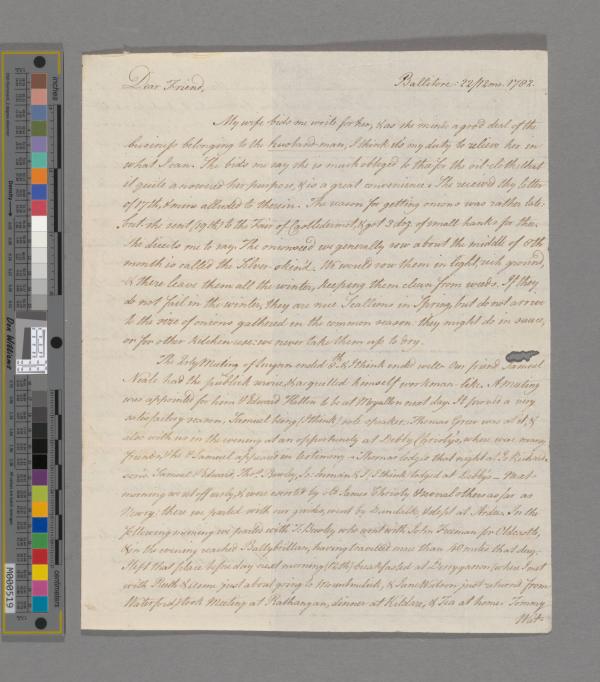 Dear Friend,
Ballitore 22/12mo. 1782.
My wife bids me write for her, & as she minds a good deal of the
business belonging to the husband-man, I think it's my duty to relieve her in
what I can. She bids me say she is much obliged to thee for the oil-cloth: that
it quite answered her purpose, & is a great convenience. She received thy letter
of 17th, & mine alluded to therein. The season for getting onions was rather late:
but she sent (19th) to the Fair of Castledermot, & got 3 doz. of small hanks for thee.
She directs me to say: The onionseed we generally sow about the middle of 8th
month is called the Silver-skin'd. We would sow them in light, rich ground,
& there leave them all the winter, keeping them clean from weeds. If they
do not fail in the winter, they are nice Scallions in Spring, but do not arrive
to the size of onions gathered in the common season: they might do in sauce,
or for other kitchen use: we never take them up to dry.
The Prov. Meeting of Lurgan ended 8th, & I think ended well. Our friend Samuel
Neale had the publick service, & acquitted himself workman-like. A meeting
was appointed for him & Edward Hatton to be at Moyallen next day. It proved a very
satisfactory season, Samuel being (I think) sole speaker. Thomas Greer was at it, &
also with us in the evening at an opportunity at Debby Christy's, where were many
friends, & Tho's & Samuel appeared in testimony. Thomas lodged that night at Jo. Richard-
son's. Samuel, Edward, Thos. Bewley, Jo. Inman & I, I think lodged at Debby's. Next
morning we set off early, & were escorted by Jos. James Christy & several others as far as
Newry: there we parted with our guides, went by Dundalk, & slept at Ardee. In the
following morning we parted with T. Bewley who went with John Freeman for Oldcastle,
& in the evening reached Ballybrittan, having travelled more than 40 miles that day:
I left that place before day next morning (12th) breakfasted at Derrygarron (where I met
with Ruth & Susan just about going to Mountmelick, & Jane Watson, just returned from
Waterford) took Meeting at Rathangan, dinner at Kildare, & Tea at home. Tommy
Wat-
inches
centimeters
Density
Don Williams
M000519